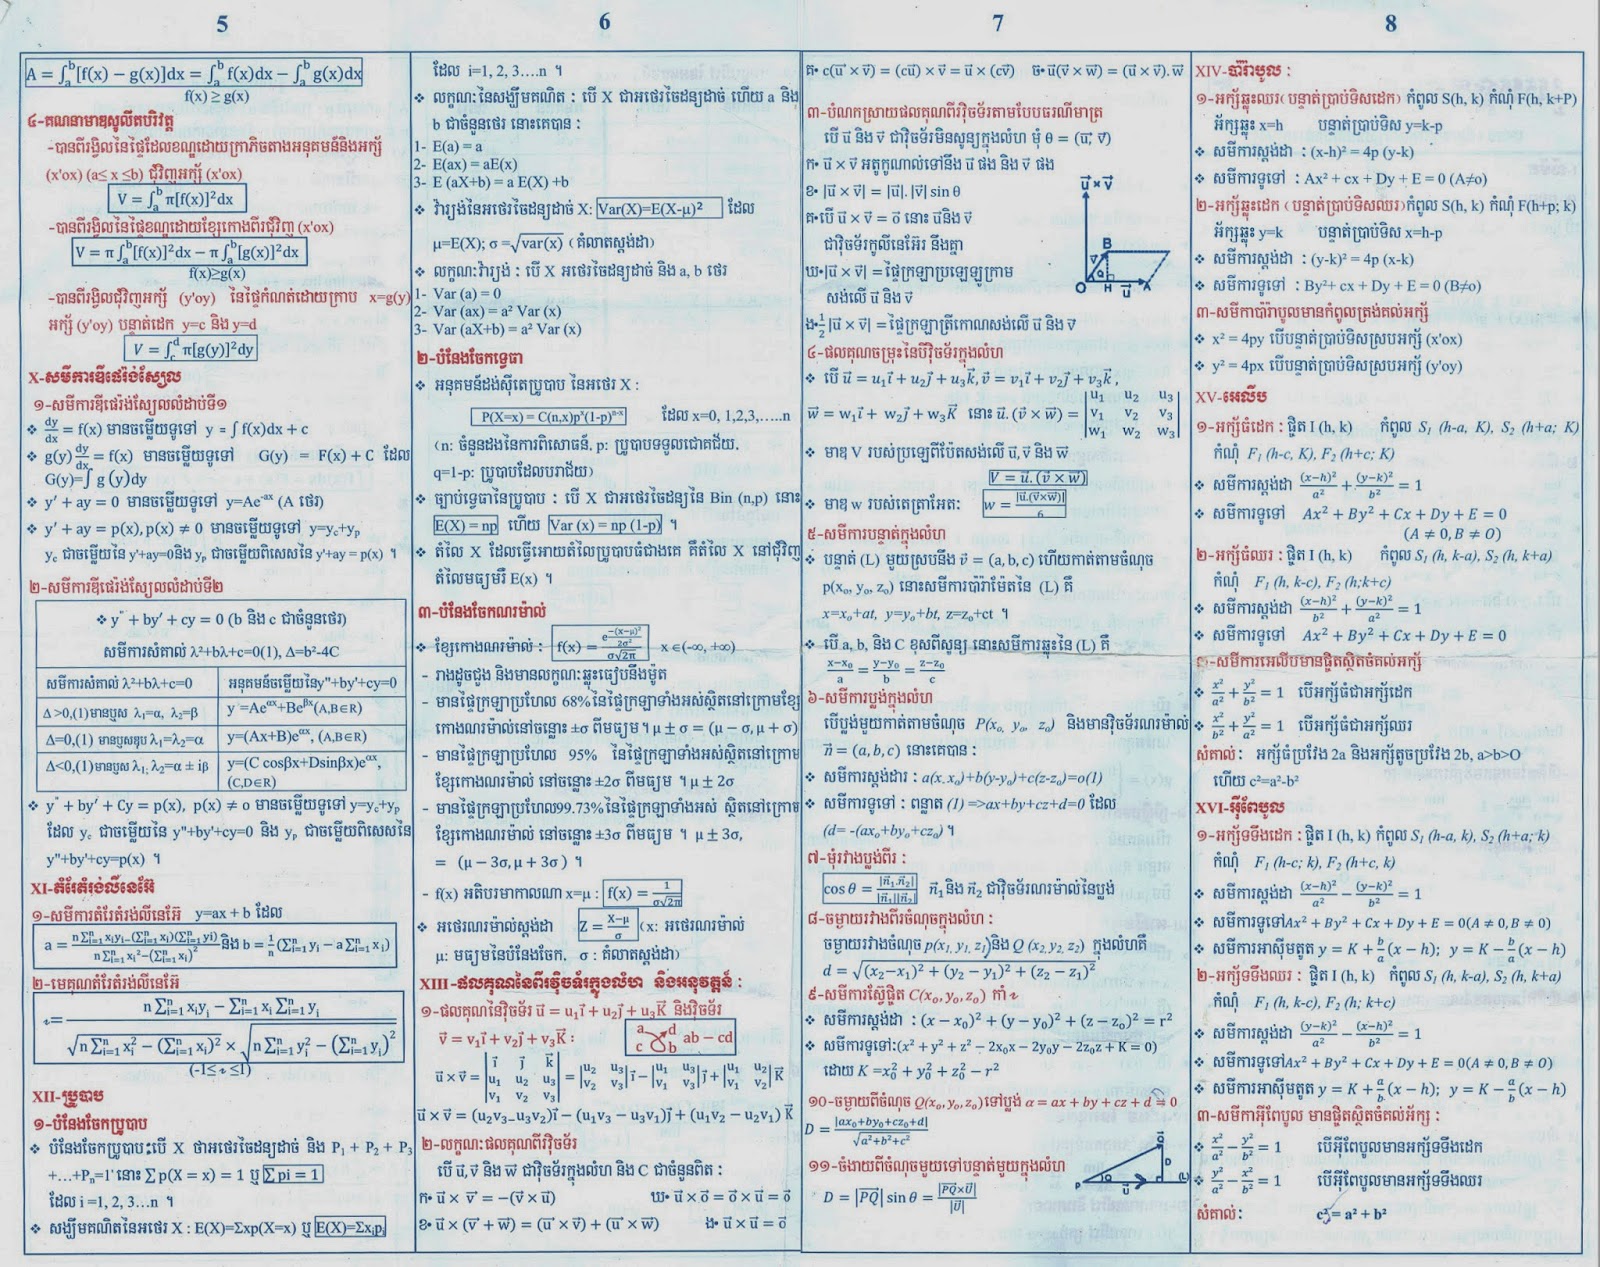 5
A = ∫ₐᵇ[f(x) − g(x)]dx = ∫ₐᵇ f(x)dx − ∫ₐᵇ g(x)dx
f(x) ≥ g(x)
៤-គណនាមាឌសូលីតបរិវត្ត
-បានពីរង្វិលនៃផ្ទៃដែលខណ្ឌដោយក្រាភិចតាងអនុគមន៍និងអក្ស័
(x'ox) (a≤ x ≤b) ជុំវិញអក្ស័ (x'ox)
V = ∫ₐᵇ π[f(x)]²dx
-បានពីរង្វិលនៃផ្ទៃខណ្ឌដោយខ្សែកោងពីរជុំវិញ (x'ox)
V = π∫ₐᵇ[f(x)]²dx − π∫ₐᵇ[g(x)]²dx
f(x)≥g(x)
-បានពីរង្វិលជុំវិញអក្ស័ (y'oy) នៃផ្ទៃកំណត់ដោយក្រាប x=g(y)
អក្ស័ (y'oy) បន្ទាត់ដេក y=c និង y=d
V = ∫ᵈ π[g(y)]²dy
X-សមីការឌីផេរ៉ង់ស្យែល
១-សមីការឌីផេរ៉ង់ស្យែលលំដាប់ទី១
❖ dy/dx = f(x) មានចម្លើយទូទៅ y = ∫ f(x)dx + c
❖ g(y) dy/dx = f(x) មានចម្លើយទូទៅ G(y) = F(x) + C ដែល
G(y)=∫ g (y)dy
❖ y′ + ay = 0 មានចម្លើយទូទៅ y=Ae⁻ᵃˣ (A ថេរ)
❖ y′ + ay = p(x), p(x) ≠ 0 មានចម្លើយទូទៅ y=y_c+y_p
y_c ជាចម្លើយនៃ y'+ay=0និង y_p ជាចម្លើយពិសេសនៃ y'+ay = p(x) ។
២-សមីការឌីផេរ៉ង់ស្យែលលំដាប់ទី២
❖ y″ + by′ + cy = 0 (b និង c ជាចំនួនថេរ)
សមីការសំគាល់ λ²+bλ+c=0(1), Δ=b²-4C
សមីការសំគាល់ λ²+bλ+c=0 អនុគមន៍ចម្លើយនៃy"+by'+cy=0
Δ >0,(1)មានឫស λ₁=α, λ₂=β y =Ae^αx+Be^βx(A,B∈R)
Δ=0,(1) មានឫសឌុប λ₁=λ₂=α y=(Ax+B)e^αx, (A,B∈R)
Δ<0,(1)មានឫស λ₁; λ₂=α ± iβ y=(C cosβx+Dsinβx)e^αx,
(C,D∈R)
❖ y″ + by′ + Cy = p(x), p(x) ≠ o មានចម្លើយទូទៅ y=y_c+y_p
ដែល y_c ជាចម្លើយនៃ y"+by'+cy=0 និង y_p ជាចម្លើយពិសេសនៃ
y"+by'+cy=p(x) ។
XI-តំរែតំរង់លីនេអ៊ែ
១-សមីការតំរែតំរង់លីនេអ៊ែ y=ax + b ដែល
a = (n∑ⁿᵢ₌₁ xᵢyᵢ−(∑ⁿᵢ₌₁ xᵢ)(∑ⁿᵢ₌₁ yᵢ))/(n∑ⁿᵢ₌₁ xᵢ²−(∑ⁿᵢ₌₁ xᵢ)²) និង b = 1/n (∑ⁿᵢ₌₁ yᵢ − a∑ⁿᵢ₌₁ xᵢ)
២-មេគុណតំរែតំរង់លីនេអ៊ែ
r = (n∑ⁿᵢ₌₁ xᵢyᵢ − ∑ⁿᵢ₌₁ xᵢ ∑ⁿᵢ₌₁ yᵢ)/(√(n∑ⁿᵢ₌₁ xᵢ² − (∑ⁿᵢ₌₁ xᵢ)²) × √(n∑ⁿᵢ₌₁ yᵢ² − (∑ⁿᵢ₌₁ yᵢ)²))
(-1≤ r ≤1)
XII-ប្រូបាប
១-បំនែងចែកប្រូបាប
❖ បំនែងចែកប្រូបាប:បើ X ថាអថេរចៃដន្យដាច់ និង P₁ + P₂ + P₃
+...+Pₙ=1 នោះ ∑ p(X = x) = 1 ឬ ∑ pi = 1
ដែល i =1, 2, 3…n ។
❖ សង្ឃឹមគណិតនៃអថេរ X : E(X)=Σxp(X=x) ឬ E(X)=Σxᵢpᵢ
6
ដែល i=1, 2, 3….n ។
❖ លក្ខណៈនៃសង្ឃឹមគណិត : បើ X ជាអថេរចៃដន្យដាច់ ហើយ a និង
b ជាចំនួនថេរ នោះគេបាន :
1- E(a) = a
2- E(ax) = aE(x)
3- E (aX+b) = a E(X) +b
❖ វ៉ារ្យង់នៃអថេរចៃដន្យដាច់ X: Var(X)=E(X-μ)² ដែល
μ=E(X); σ =√var(x) (គំលាតស្តង់ដា)
❖ លក្ខណៈវ៉ារ្យង់ : បើ X អថេរចៃដន្យដាច់ និង a, b ថេរ
1- Var (a) = 0
2- Var (ax) = a² Var (x)
3- Var (aX+b) = a² Var (x)
២-បំនែងចែកទ្វេធា
❖ អនុគមន៍ដង់ស៊ីតេប្រូបាប នៃអថេរ X :
P(X=x) = C(n,x)pˣ(1-p)ⁿ⁻ˣ ដែល x=0, 1,2,3,…..n
(n: ចំនួនដងនៃការពិសោធន៍, p: ប្រូបាបទទួលជោគជ័យ.
q=1-p: ប្រូបាបដែលបរាជ័យ)
❖ ច្បាប់ទ្វេធានៃប្រូបាប : បើ X ជាអថេរចៃដន្យនៃ Bin (n,p) នោះ
E(X) = np ហើយ Var (x) = np (1-p) ។
❖ តំលៃ X ដែលធ្វើអោយតំលៃប្រូបាបធំជាងគេ គឺតំលៃ X នៅជុំវិញ
តំលៃមធ្យមរឺ E(x) ។
៣-បំនែងចែកណរម៉ាល់
❖ ខ្សែកោងណរម៉ាល់ : f(x) = e^(−(x−μ)²/2σ²)/(σ√2π) x ∈(-∞, +∞)
- រាងដូចជួង និងមានលក្ខណៈឆ្លុះធៀបនឹងម៉ូត
- មានផ្ទៃក្រឡាប្រហែល 68% នៃផ្ទៃក្រឡាទាំងអស់ស្ថិតនៅក្រោមខ្សែ
កោងណរម៉ាល់នៅចន្លោះ ±σ ពីមធ្យម ។ μ ± σ = (μ − σ, μ + σ)
- មានផ្ទៃក្រឡាប្រហែល 95% នៃផ្ទៃក្រឡាទាំងអស់ស្ថិតនៅក្រោម
ខ្សែកោងណរម៉ាល់ នៅចន្លោះ ±2σ ពីមធ្យម ។ μ ± 2σ
- មានផ្ទៃក្រឡាប្រហែល99.73%នៃផ្ទៃក្រឡាទាំងអស់ ស្ថិតនៅក្រោម
ខ្សែកោងណរម៉ាល់ នៅចន្លោះ ±3σ ពីមធ្យម ។ μ ± 3σ,
= (μ − 3σ, μ + 3σ ) ។
- f(x) អតិបរមាកាលណា x=μ : f(x) = 1/(σ√2π)
❖ អថេរណរម៉ាល់ស្តង់ដា Z = (X−μ)/σ (x: អថេរណរម៉ាល់
μ: មធ្យមនៃបំនែងចែក, σ : គំលាតស្តង់ដា)
XIII-ផលគុណនៃពីរវ៉ិចទ័រក្នុងលំហ និងអនុវត្តន៍ :
១-ផលគុណនៃវ៉ិចទ័រ u⃗ = u₁i⃗ + u₂j⃗ + u₃K⃗ និងវ៉ិចទ័រ
v⃗ = v₁i⃗ + v₂j⃗ + v₃K⃗ : a d c b ab − cd
u⃗ × v⃗ = |i⃗ j⃗ k⃗; u₁ u₂ u₃; v₁ v₂ v₃| = |u₂ u₃; v₂ v₃|i⃗ − |u₁ u₃; v₁ v₃|j⃗ + |u₁ u₂; v₁ v₂|K⃗
u⃗ × v⃗ = (u₂v₃−u₃v₂)i⃗ − (u₁v₃ − u₃v₁)j⃗ + (u₁v₂ − u₂v₁) K⃗
២-លក្ខណៈផលគុណពីរវ៉ិចទ័រ
បើ u⃗, v⃗ និង w⃗ ជាវ៉ិចទ័រក្នុងលំហ និង C ជាចំនួនពិត :
ក• u⃗ × v⃗ = −(v⃗ × u⃗) ឃ• u⃗ × o⃗ = o⃗ × u⃗ = o⃗
ខ• u⃗ × (v⃗ + w⃗) = (u⃗ × v⃗) + (u⃗ × w⃗) ង• u⃗ × u⃗ = o⃗
7
គ• c(u⃗ × v⃗) = (cu⃗) × v⃗ = u⃗ × (cv⃗) ច• u⃗(v⃗ × w⃗) = (u⃗ × v⃗). w⃗
៣-បំណកស្រាយផលគុណពីរវ៉ិចទ័រតាមបែបធរណីមាត្រ
បើ u⃗ និង v⃗ ជាវ៉ិចទ័រមិនសូន្យក្នុងលំហ មុំ θ = (u⃗; v⃗)
ក• u⃗ × v⃗ អតូកូណាល់ទៅនឹង u⃗ ផង និង v⃗ ផង
ខ• |u⃗ × v⃗| = |u⃗|. |v⃗| sin θ
គ•បើ u⃗ × v⃗ = o⃗ នោះ u⃗និង v⃗
ជាវ៉ិចទ័រកូលីនេអ៊ែរ នឹងគ្នា
ឃ•|u⃗ × v⃗| = ផ្ទៃក្រឡាប្រឡេឡូក្រាម
សង់លើ u⃗ និង v⃗
ង• 1/2 |u⃗ × v⃗| = ផ្ទៃក្រឡាត្រីកោណសង់លើ u⃗ និង v⃗
u⃗ × v⃗
B
v⃗
O H u⃗ A
៤-ផលគុណចម្រុះនៃបីវ៉ិចទ័រក្នុងលំហ
❖ បើ u⃗ = u₁i⃗ + u₂j⃗ + u₃k⃗, v⃗ = v₁i⃗ + v₂j⃗ + v₃k⃗ ,
w⃗ = w₁i⃗ + w₂j⃗ + w₃K⃗ នោះ u⃗. (v⃗ × w⃗) = |u₁ u₂ u₃; v₁ v₂ v₃; w₁ w₂ w₃|
❖ មាឌ V របស់ប្រឡេពីប៉ែតសង់លើ u⃗, v⃗ និង w⃗
V = u⃗. (v⃗ × w⃗)
❖ មាឌ w របស់តេត្រាអែត: w = |u⃗.(v⃗×w⃗)|/6
៥-សមីការបន្ទាត់ក្នុងលំហ
❖ បន្ទាត់ (L) មួយស្របនឹង v⃗ = (a, b, c) ហើយកាត់តាមចំណុច
p(xₒ, yₒ, zₒ) នោះសមីការប៉ារ៉ាម៉ែតនៃ (L) គឺ
x=xₒ+at, y=yₒ+bt, z=zₒ+ct ។
❖ បើ a, b, និង C ខុសពីសូន្យ នោះសមីការឆ្លុះនៃ (L) គឺ
(x−x₀)/a = (y−y₀)/b = (z−z₀)/c
៦-សមីការប្លង់ក្នុងលំហ
បើប្លង់មួយកាត់តាមចំណុច P(xₒ, yₒ, zₒ) និងមានវ៉ិចទ័រណរម៉ាល់
n⃗ = (a, b, c) នោះគេបាន :
❖ សមីការស្តង់ដារ : a(x.xₒ)+b(y-yₒ)+c(z-zₒ)=o(1)
❖ សមីការទូទៅ : ពន្លាត (1) =>ax+by+cz+d=0 ដែល
(d= -(axₒ+byₒ+czₒ) ។
៧-មុំរវាងប្លង់ពីរ :
cos θ = |n⃗₁.n⃗₂|/(|n⃗₁||n⃗₂|) n⃗₁ និង n⃗₂ ជាវ៉ិចទ័រណរម៉ាល់នៃប្លង់
៨-ចម្ងាយរវាងពីរចំណុចក្នុងលំហ :
ចម្ងាយរវាងចំណុច p(x₁, y₁, z₁)និង Q (x₂,y₂, z₂) ក្នុងលំហគឺ
d = √((x₂−x₁)² + (y₂ − y₁)² + (z₂ − z₁)²)
៩-សមីការស្វ៊ែផ្ចិត C(xₒ, yₒ, zₒ) កាំ r
❖ សមីការស្តង់ដា : (x − x₀)² + (y − y₀)² + (z − z₀)² = r²
❖ សមីការទូទៅ:(x² + y² + z² − 2x₀x − 2y₀y − 2z₀z + K = 0)
ដោយ K = x₀² + y₀² + z₀² − r²
១០-ចម្ងាយពីចំណុច Q(xₒ, yₒ, zₒ) ទៅប្លង់ α = ax + by + cz + d = 0
D = |ax₀+by₀+cz₀+d|/√(a²+b²+c²)
១១-ចំងាយពីចំណុចមួយទៅបន្ទាត់មួយក្នុងលំហ
D = |PQ⃗| sin θ = |PQ⃗×U⃗|/|U⃗|
Q
D
P θ u⃗ (L)
8
XIV-ប៉ារ៉ាបូល :
១-អក្ស័ឆ្លុះឈរ(បន្ទាត់ប្រាប់ទិសដេក) កំពូល S(h, k) កំណុំ F(h, k+P)
អ័ក្សឆ្លុះ x=h បន្ទាត់ប្រាប់ទិស y=k-p
❖ សមីការស្តង់ដា : (x-h)² = 4p (y-k)
❖ សមីការទូទៅ : Ax² + cx + Dy + E = 0 (A≠o)
២-អក្ស័ឆ្លុះដេក (បន្ទាត់ប្រាប់ទិសឈរ)កំពូល S(h, k) កំណុំ F(h+p; k)
អ័ក្សឆ្លុះ y=k បន្ទាត់ប្រាប់ទិស x=h-p
❖ សមីការស្តង់ដា : (y-k)² = 4p (x-k)
❖ សមីការទូទៅ : By²+ cx + Dy + E = 0 (B≠o)
៣-សមីកាប៉ារ៉ាបូលមានកំពូលត្រង់គល់អក្ស័
❖ x² = 4py បើបន្ទាត់ប្រាប់ទិសស្របអក្ស័ (x'ox)
❖ y² = 4px បើបន្ទាត់ប្រាប់ទិសស្របអក្ស័ (y'oy)
XV-អេលីប
១-អក្ស័ធំដេក : ផ្ចិត I (h, k) កំពូល S₁ (h-a, K), S₂ (h+a; K)
កំណុំ F₁ (h-c, K), F₂ (h+c; K)
❖ សមីការស្តង់ដា (x−h)²/a² + (y−k)²/b² = 1
❖ សមីការទូទៅ Ax² + By² + Cx + Dy + E = 0
(A ≠ 0, B ≠ O)
២-អក្ស័ធំឈរ : ផ្ចិត I (h, k) កំពូល S₁ (h, k-a), S₂ (h, k+a)
កំណុំ F₁ (h, k-c), F₂ (h;k+c)
❖ សមីការស្តង់ដា (x−h)²/b² + (y−k)²/a² = 1
❖ សមីការទូទៅ Ax² + By² + Cx + Dy + E = 0
៣-សមីការអេលីបមានផ្ចិតស្ថិតចំគល់អក្ស័
❖ x²/a² + y²/b² = 1 បើអក្ស័ធំជាអក្ស័ដេក
❖ x²/b² + y²/a² = 1 បើអក្ស័ធំជាអក្ស័ឈរ
សំគាល់: អក្ស័ធំប្រវែង 2a និងអក្ស័តូចប្រវែង 2b, a>b>O
ហើយ c²=a²-b²
XVI-អ៊ីពែបូល
១-អក្ស័ទទឹងដេក : ផ្ចិត I (h, k) កំពូល S₁ (h-a, k), S₂ (h+a; k)
កំណុំ F₁ (h-c; k), F₂ (h+c, k)
❖ សមីការស្តង់ដា (x−h)²/a² − (y−k)²/b² = 1
❖ សមីការទូទៅAx² + By² + Cx + Dy + E = 0(A ≠ 0, B ≠ 0)
❖ សមីការអាស៊ីមតូត y = K + b/a (x − h); y = K − b/a (x − h)
២-អក្ស័ទទឹងឈរ : ផ្ចិត I (h, k) កំពូល S₁ (h, k-a), S₂ (h, k+a)
កំណុំ F₁ (h, k-c), F₂ (h; k+c)
❖ សមីការស្តង់ដា (y−k)²/a² − (x−h)²/b² = 1
❖ សមីការទូទៅAx² + By² + Cx + Dy + E = 0(A ≠ 0, B ≠ O)
❖ សមីការអាស៊ីមតូត y = K + a/b (x − h); y = K − a/b (x − h)
៣-សមីកាអ៊ីពែបូល មានផ្ចិតស្ថិតចំគល់អ័ក្ស :
❖ x²/a² − y²/b² = 1 បើអ៊ីពែបូលមានអក្ស័ទទឹងដេក
❖ y²/a² − x²/b² = 1 បើអ៊ីពែបូលមានអក្ស័ទទឹងឈរ
សំគាល់: c² = a² + b²